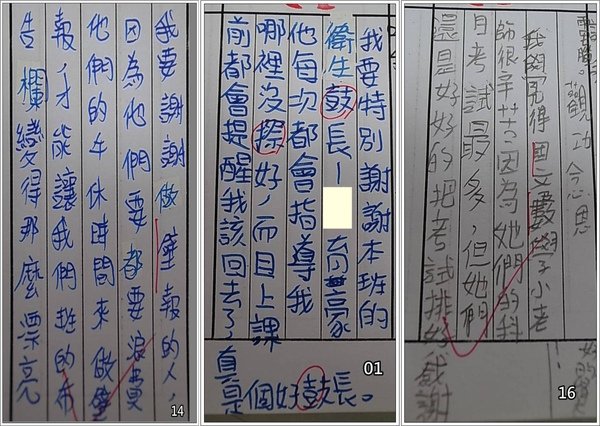 我要謝謝做壁報的人,
因為他們要都要浪費
他們的午休時間來做壁
報,才能讓我們班的布
告欄變得那麼漂亮
14
我要特別謝謝本班的
衛生鼓長—育豪
他每次都會指導我
哪裡沒探好,而且上課
前都會提醒我該回去了,
真是個好鼓長。
01
觀功念恩
我覺得國文數學小老
師很辛苦,因為她們的科
目考試最多,但她們
還是好好的把考試排好,感謝
16